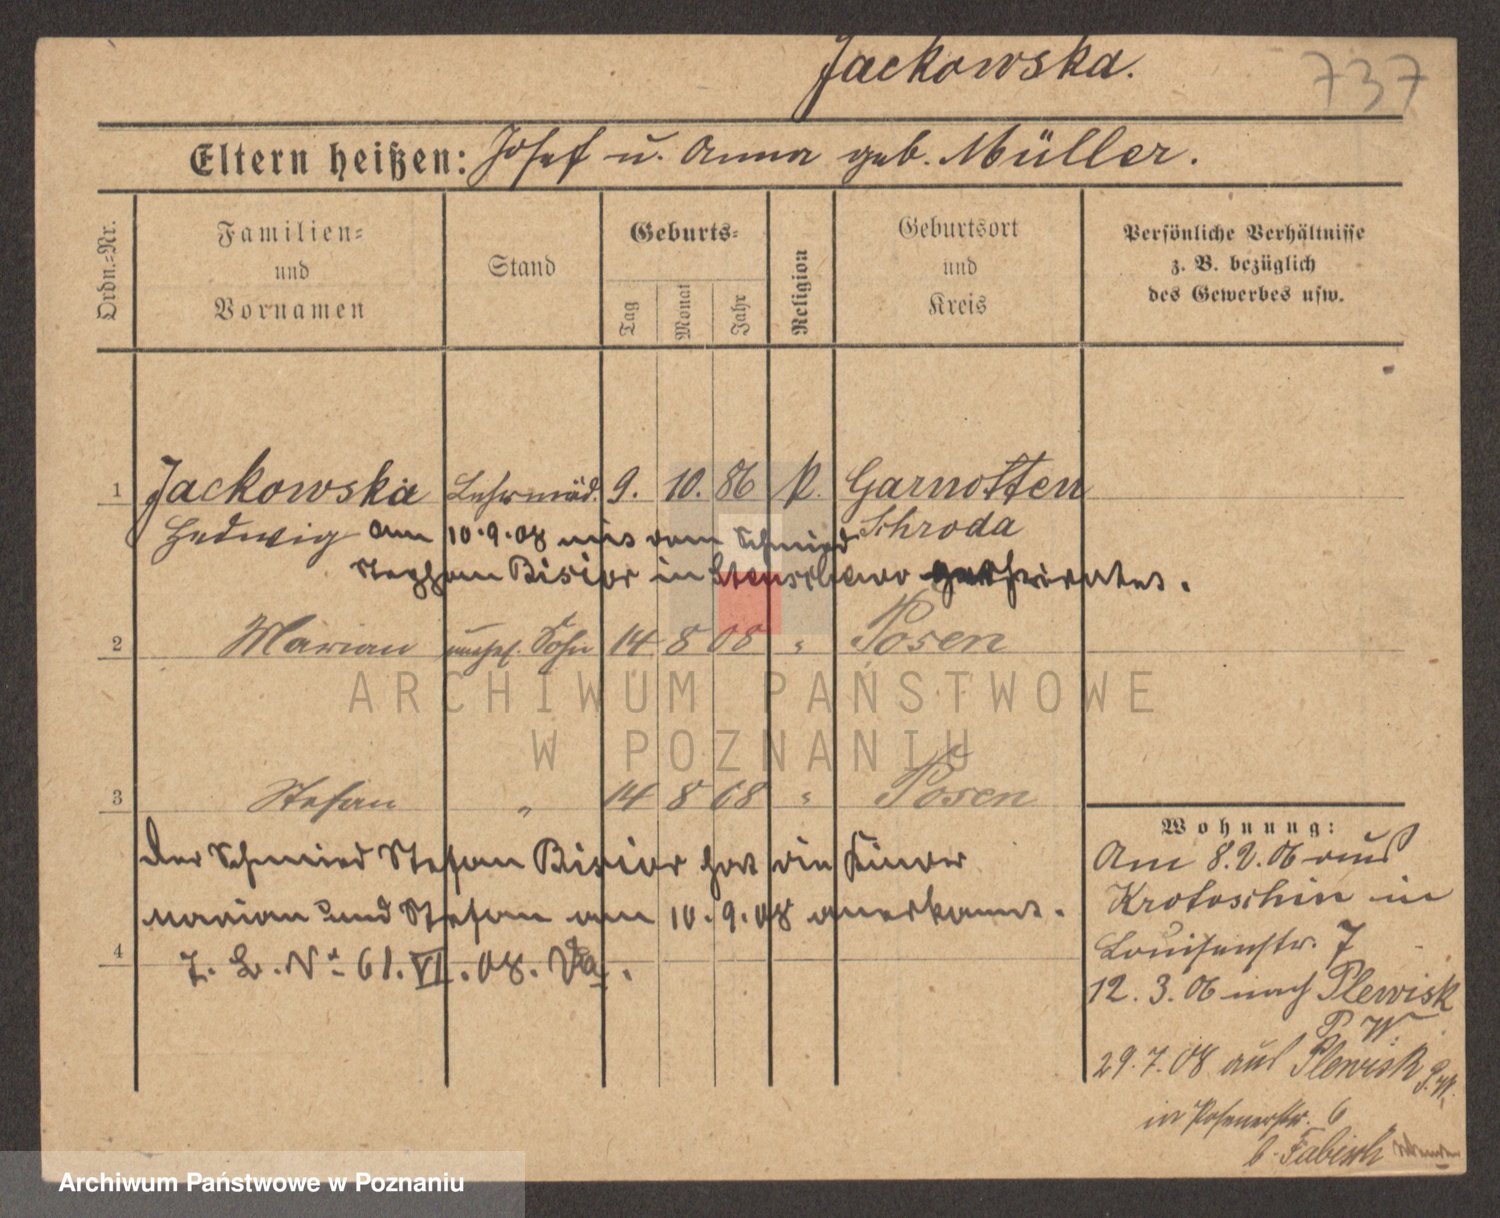 Jackowska.
737
Eltern heißen: Josef u. Anna geb. Müller.
Ordn.-Nr.
Familien-
und
Vornamen
Stand
Geburts-
Tag
Monat
Jahr
Religion
Geburtsort
und
Kreis
Persönliche Verhältnisse
z. B. bezüglich
des Gewerbes usw.
1 Jackowska Lehrmäd. 9. 10. 86 k. Garnotten
Hedwig Schroda
am 10.9.08 mit dem Schmied
Stephan Bisior in verheiratet.
2 Marian unehel. Sohn 14 8 08 " Posen
ARCHIWUM PAŃSTWOWE
W POZNANIU
3 Stefan " 14 8 08 " Posen
Der Schmied Stefan Bisior hat die Kinder
Marian und Stefan am 10.9.08 anerkannt.
4 J. L. No 61. VI. 08.
Wohnung:
Am 8.2.06 aus
Krotoschin in
Louisenstr. 7
12. 3. 06 nach Plewisk
P. W.
29.7.08 aus Plewisk P.W.
in Posenerstr. 6
b. Fabisch
Archiwum Państwowe w Poznaniu